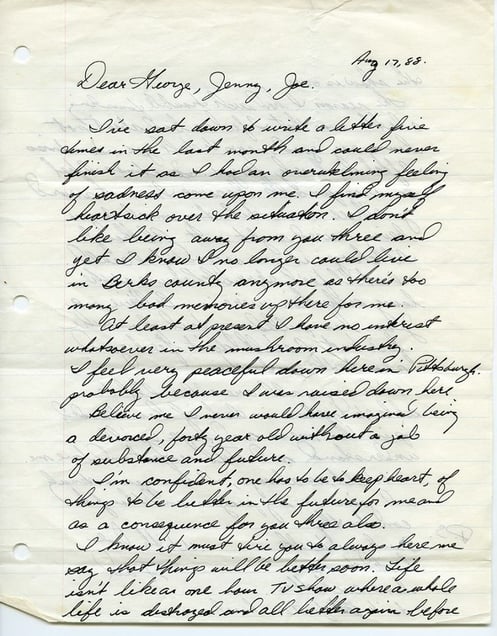 Aug 17, 88.
Dear George, Jenny, Joe.
I've sat down to write a letter five
times in the last month and could never
finish it as I had an overwhelming feeling
of sadness come upon me. I find myself
heartsick over the situation. I don't
like being away from you three and
yet I know I no longer could live
in Berks county anymore as there's too
many bad memories up there for me.
At least at present I have no interest
whatsoever in the mushroom industry.
I feel very peaceful down here in Pittsburgh.
probably because I was raised down here
Believe me I never would have imagined being
a devorced, forty year old without a job
of substance and future.
I'm confident, one has to be to keep heart, of
things to be better in the future for me and
as a consequence for you three also.
I know it must tire you to always here me
say that things will be better soon. Life
isn't like a one hour TV show where a whole
life is distroyed and all better again before